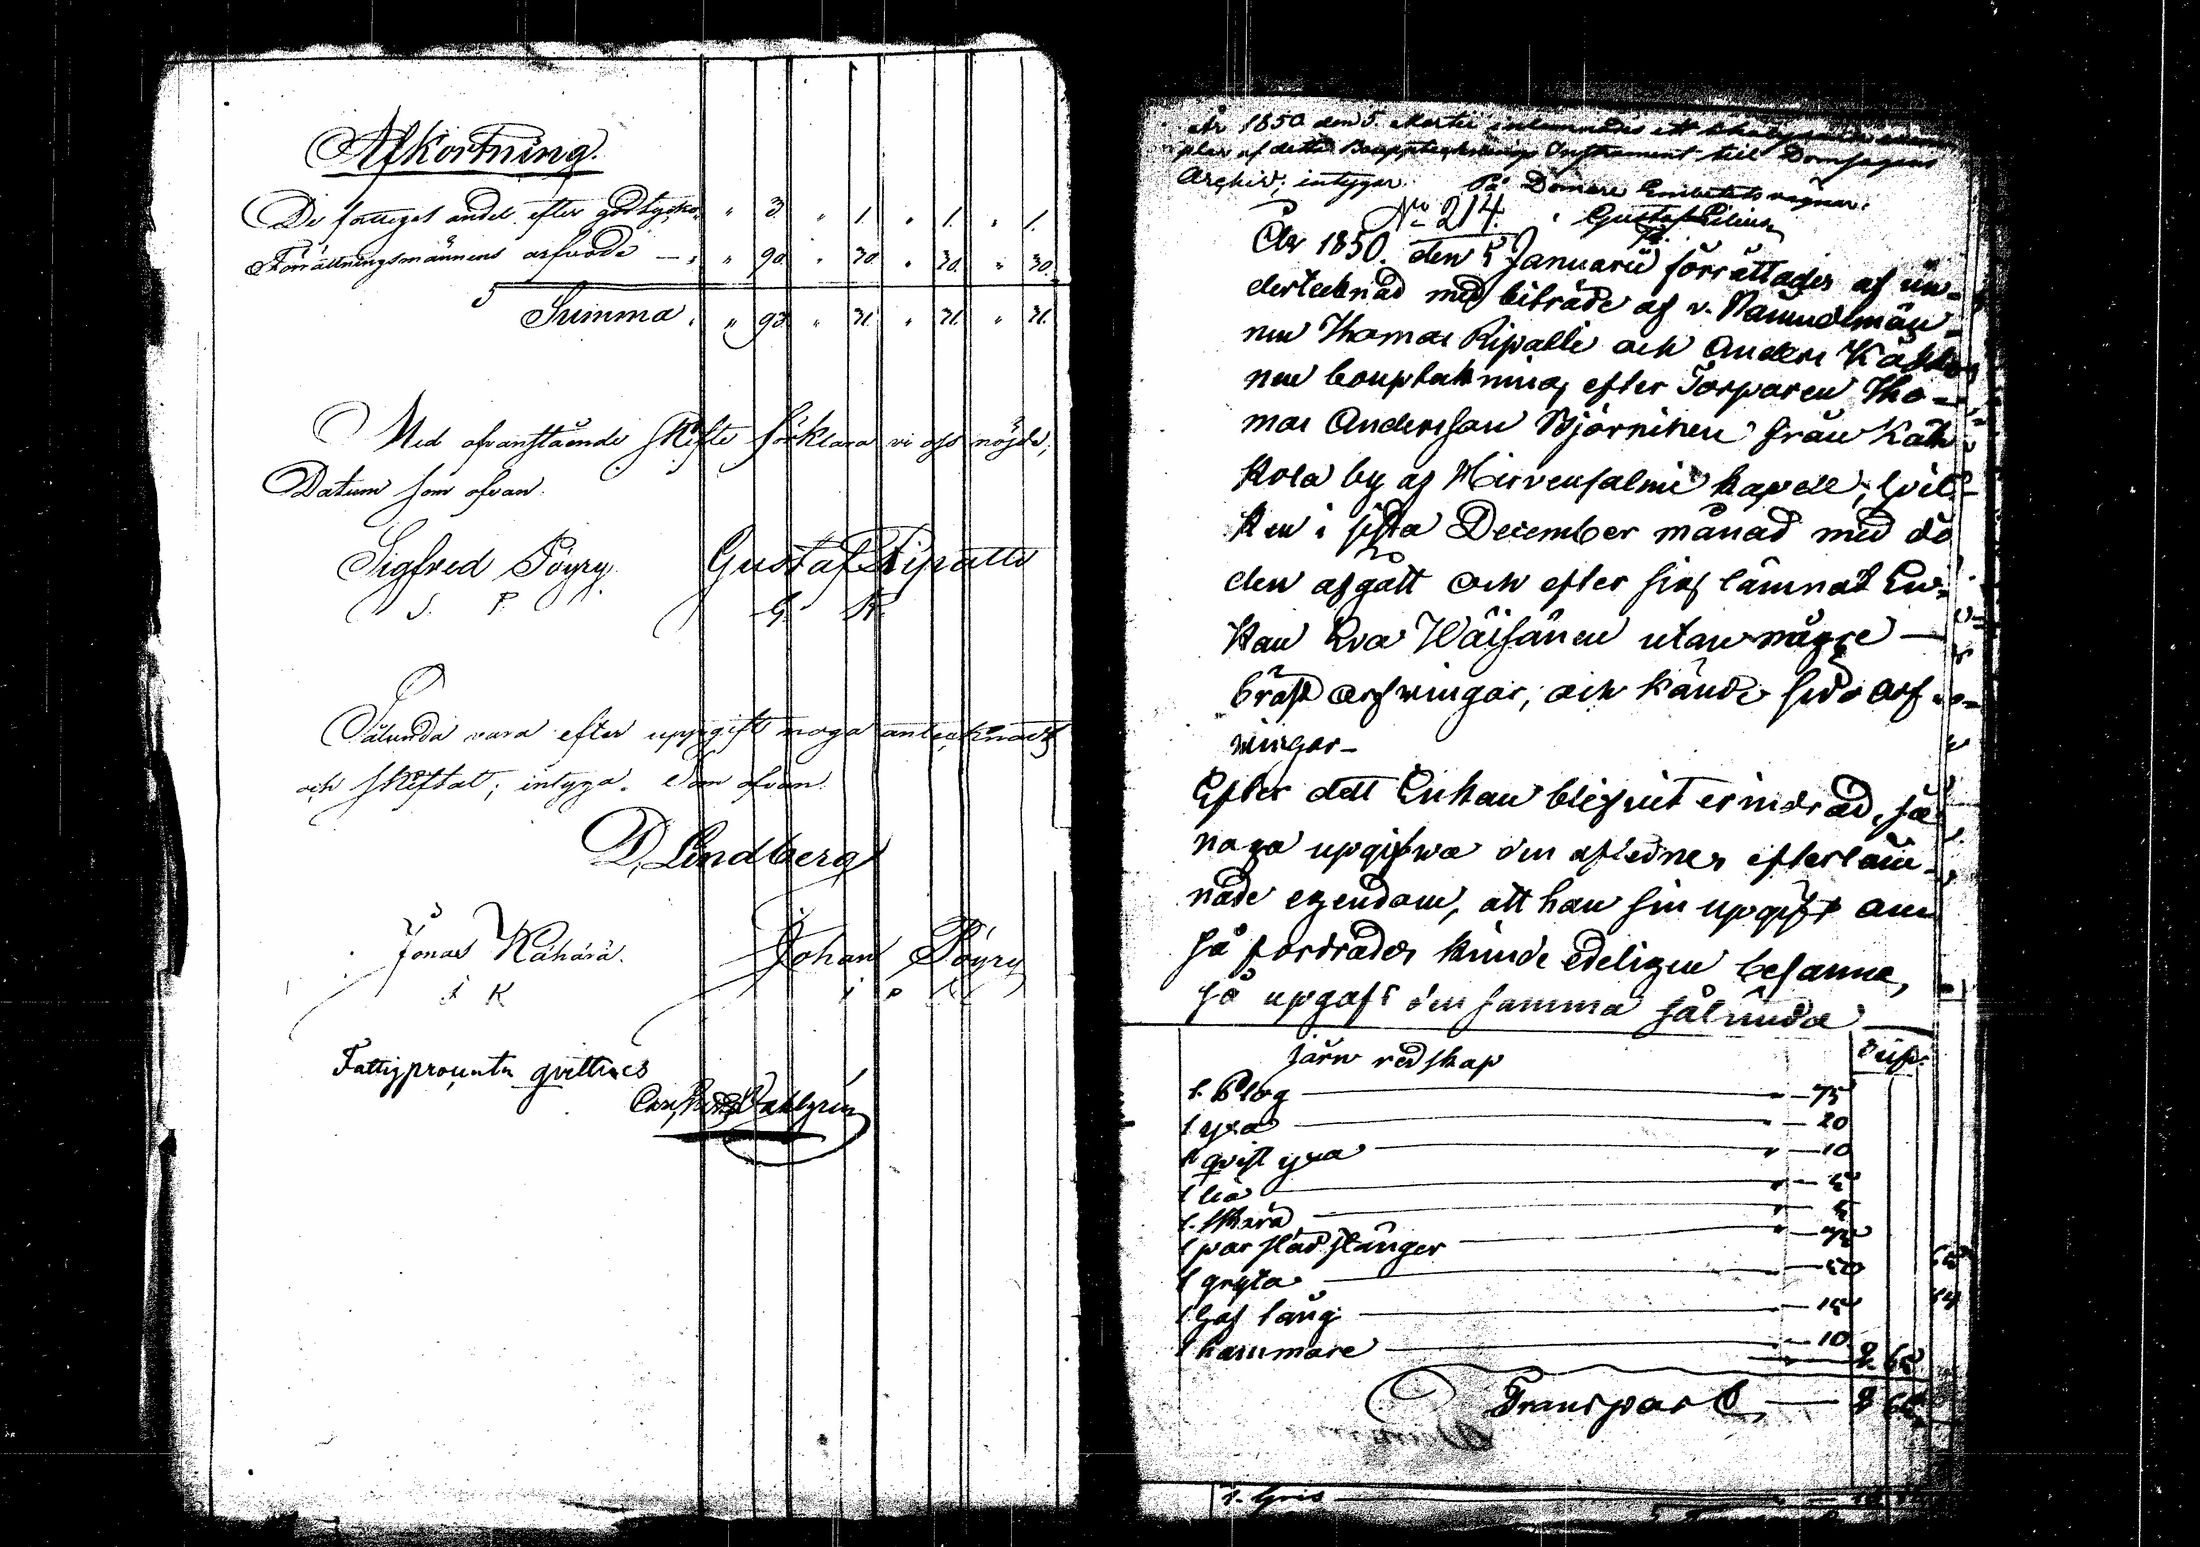 Afkortning.
De fattiges andel efter godtycke " 3. " 1. " 1. " 1.
Förrättningsmännens arfvode — " 90. " 30. " 30. " 30.
Summa " 93. " 31. " 31. " 31.
Med ofvanstående skifte förklara vi oss nöjde;
Datum som ofvan.
Sigfred Pöyry. Gustaf Ripatti
S. P. G. R.
Sålunda vara efter uppgift noga antecknadt
och skiftat; intyga. Som ofvan.
D. Lindberg
Jonas Kähärä. Johan Pöyry
J K J P
Fattigprocenten qvitteras
Dahlgren
År 1850 den 5. Martii inlemnades ett
plar af detta Bouppteknings Instrument till Domsagans
Archiv; intygar. På Domare Embetets vägnar:
No 214. Gustaf
År 1850. den 5 Januarii förrättades af un-
dertecknad med biträde af v. Nämndemän-
nen Thomas Ripatti och Anders
nen bouptekning efter Torparen Tho-
mas Andersson Björninen från Kat
kola by af Hirvensalmi kapell, hvil-
ken i sista December månad med dö
den afgått och efter sig lämnat En-
kan Eva Wäisänen utan någre —
bröst arfwingar, och kände sido arf-
wingar—
Efter dett Enkan blefvit erindrad, så
noga upgifwa den aflednes efterläm-
nade egendom, att han sin upgift om
så fordrades kunde edeligen besanna,
så upgafs den samma sålunda
Järn redskap Silf:
1. Plog — 75
1 yxa — 20
1 qvist yxa — 10
1 lia — 5
1. skära — 5
1 par slädstänger — 75
1 gryta — 50
1 hof tång — 15
1 hammare — 10
2. 65
Transport — 2 65
1. Gris